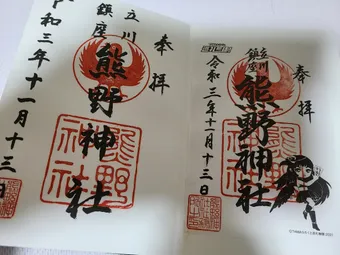 奉拝
立川
鎮座
熊野神社
令和三年十一月十三日
熊野
神社
奉拝
立川
鎮座
熊野神社
令和三年十一月十三日
熊野
神社